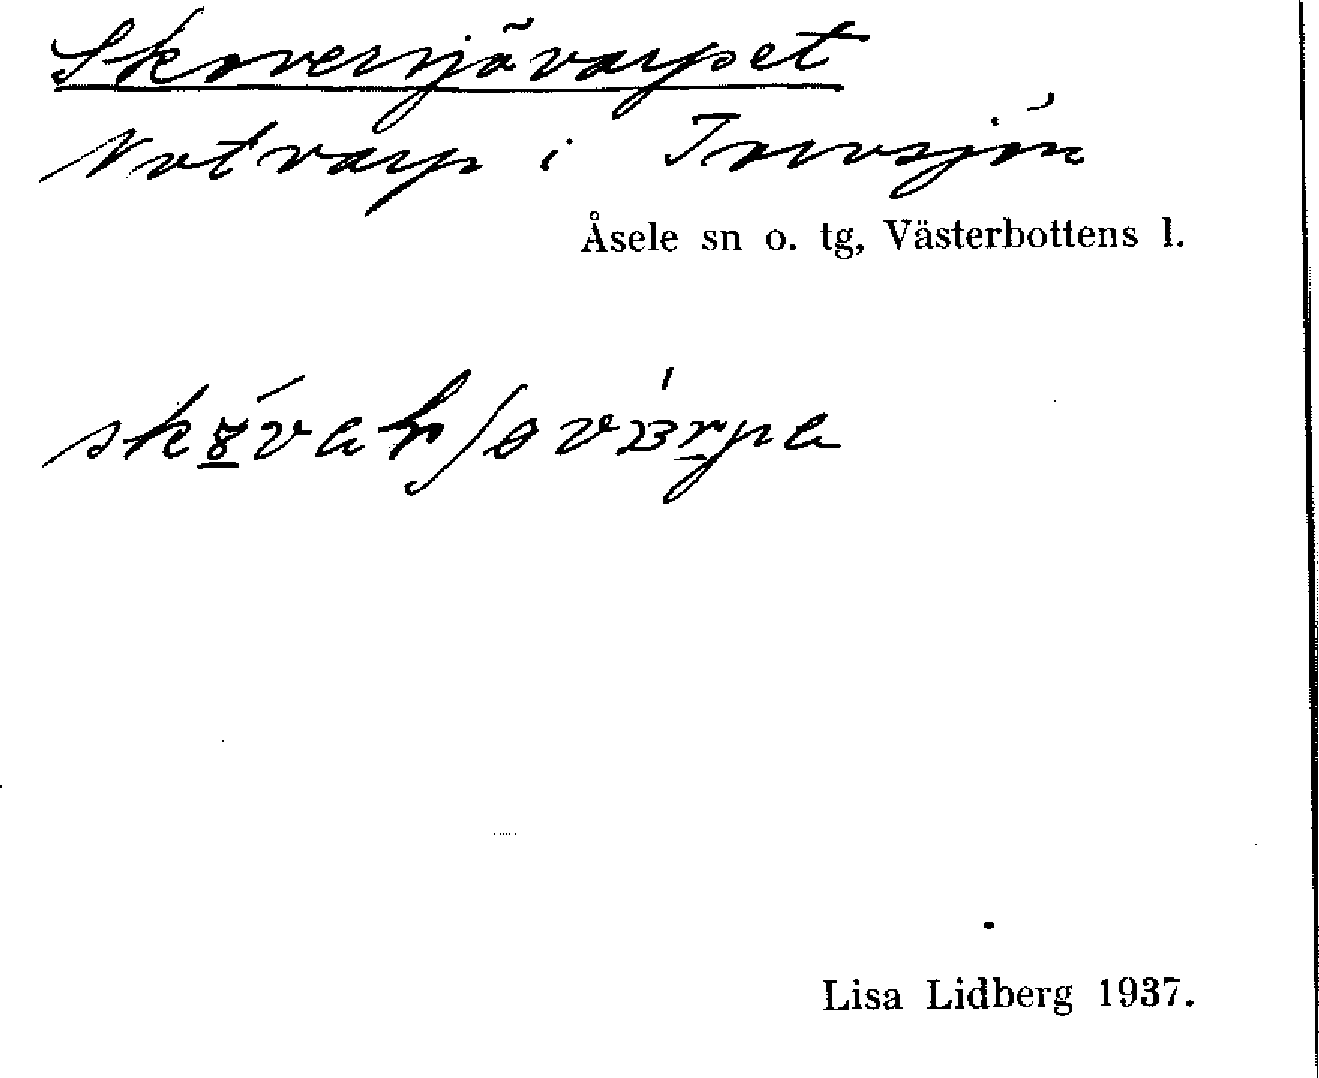 Skoversjövarpet
Notvarp i Torvsjön
Åsele sn o. tg, Västerbottens l.
Lisa Lidberg 1937.